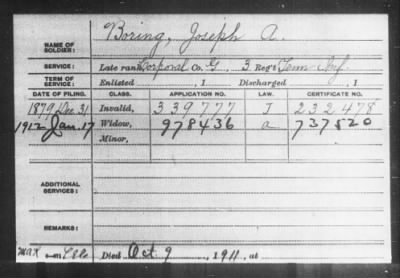 Boring, Joseph A.
NAME OF SOLDIER:
SERVICE: Late rank, Corporal Co. G, 3 Reg't Tenn Inf.
TERM OF SERVICE: Enlisted , 1 Discharged , 1
DATE OF FILING. CLASS. APPLICATION NO. LAW. CERTIFICATE NO.
1879 Dec 31 Invalid, 339777 J 232478
1912 Jan. 17 Widow, 978436 a 737520
Minor,
ADDITIONAL SERVICES:
REMARKS:
Died Oct 9, 1911, at